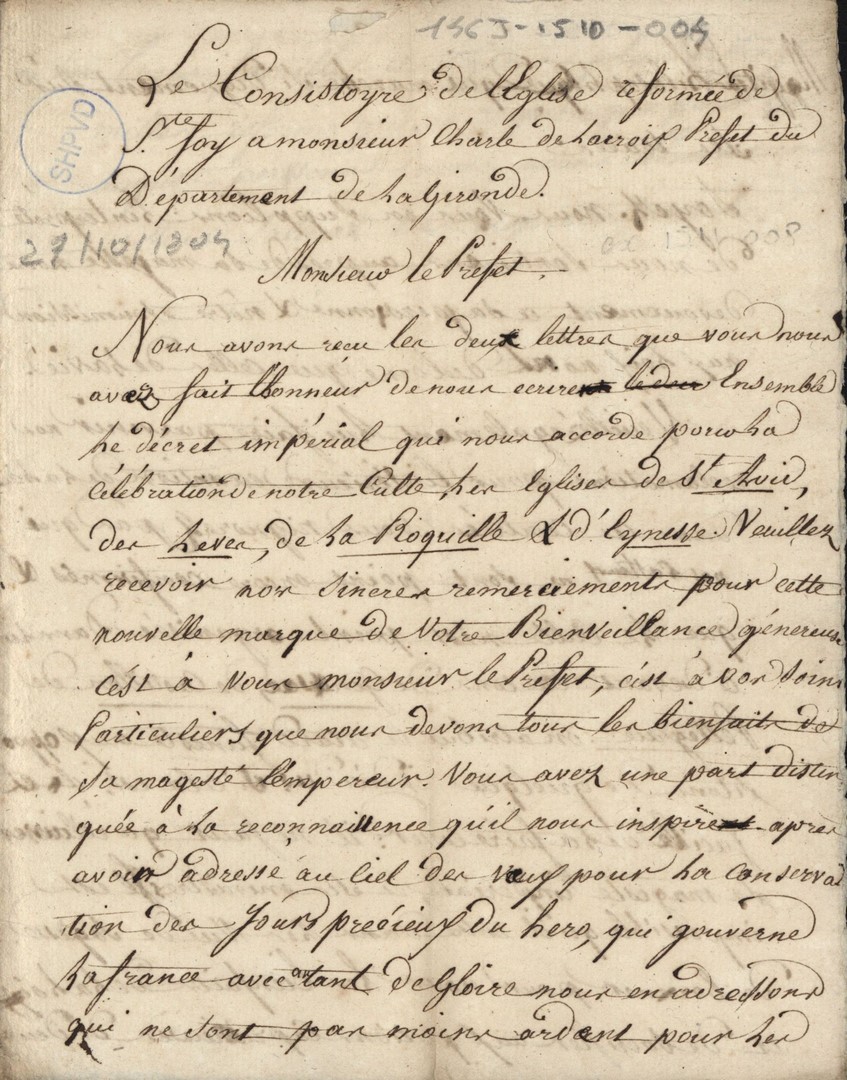 1463-1510-004
Le Consistoyre de l'Eglise reformée de
S.te foy a monsieur Charle de Lacroix Prefet du
Département de La Gironde.
SHPVD
27/10/1804
Monsieur le Prefet.
Nous avons recu les deux lettres que vous nous
avez fait l'honneur de nous ecrire Ensemble
Le décret impérial qui nous accorde pour La
célébration de notre Culte, Les Eglises de St Avit,
des Leves, de La Roquille & d'Eynesse. Veuillez
recevoir nos sinceres remerciements pour cette
nouvelle marque de Votre Bienveillance génereuse
c'ést à vous monsieur le Prefet, c'ést à vos soins
Particuliers que nous devons tous les bienfaits de
Sa magesté l'empereur. Vous avez une part distin
guée à La reconnaissence qu'il nous inspire apres
avoir adressé au Ciel des vœux pour La Conserva
tion des Jours precieux du hero, qui gouverne
La france avec autant de Gloire nous en adressons
qui ne sont pas moins ardent pour Les